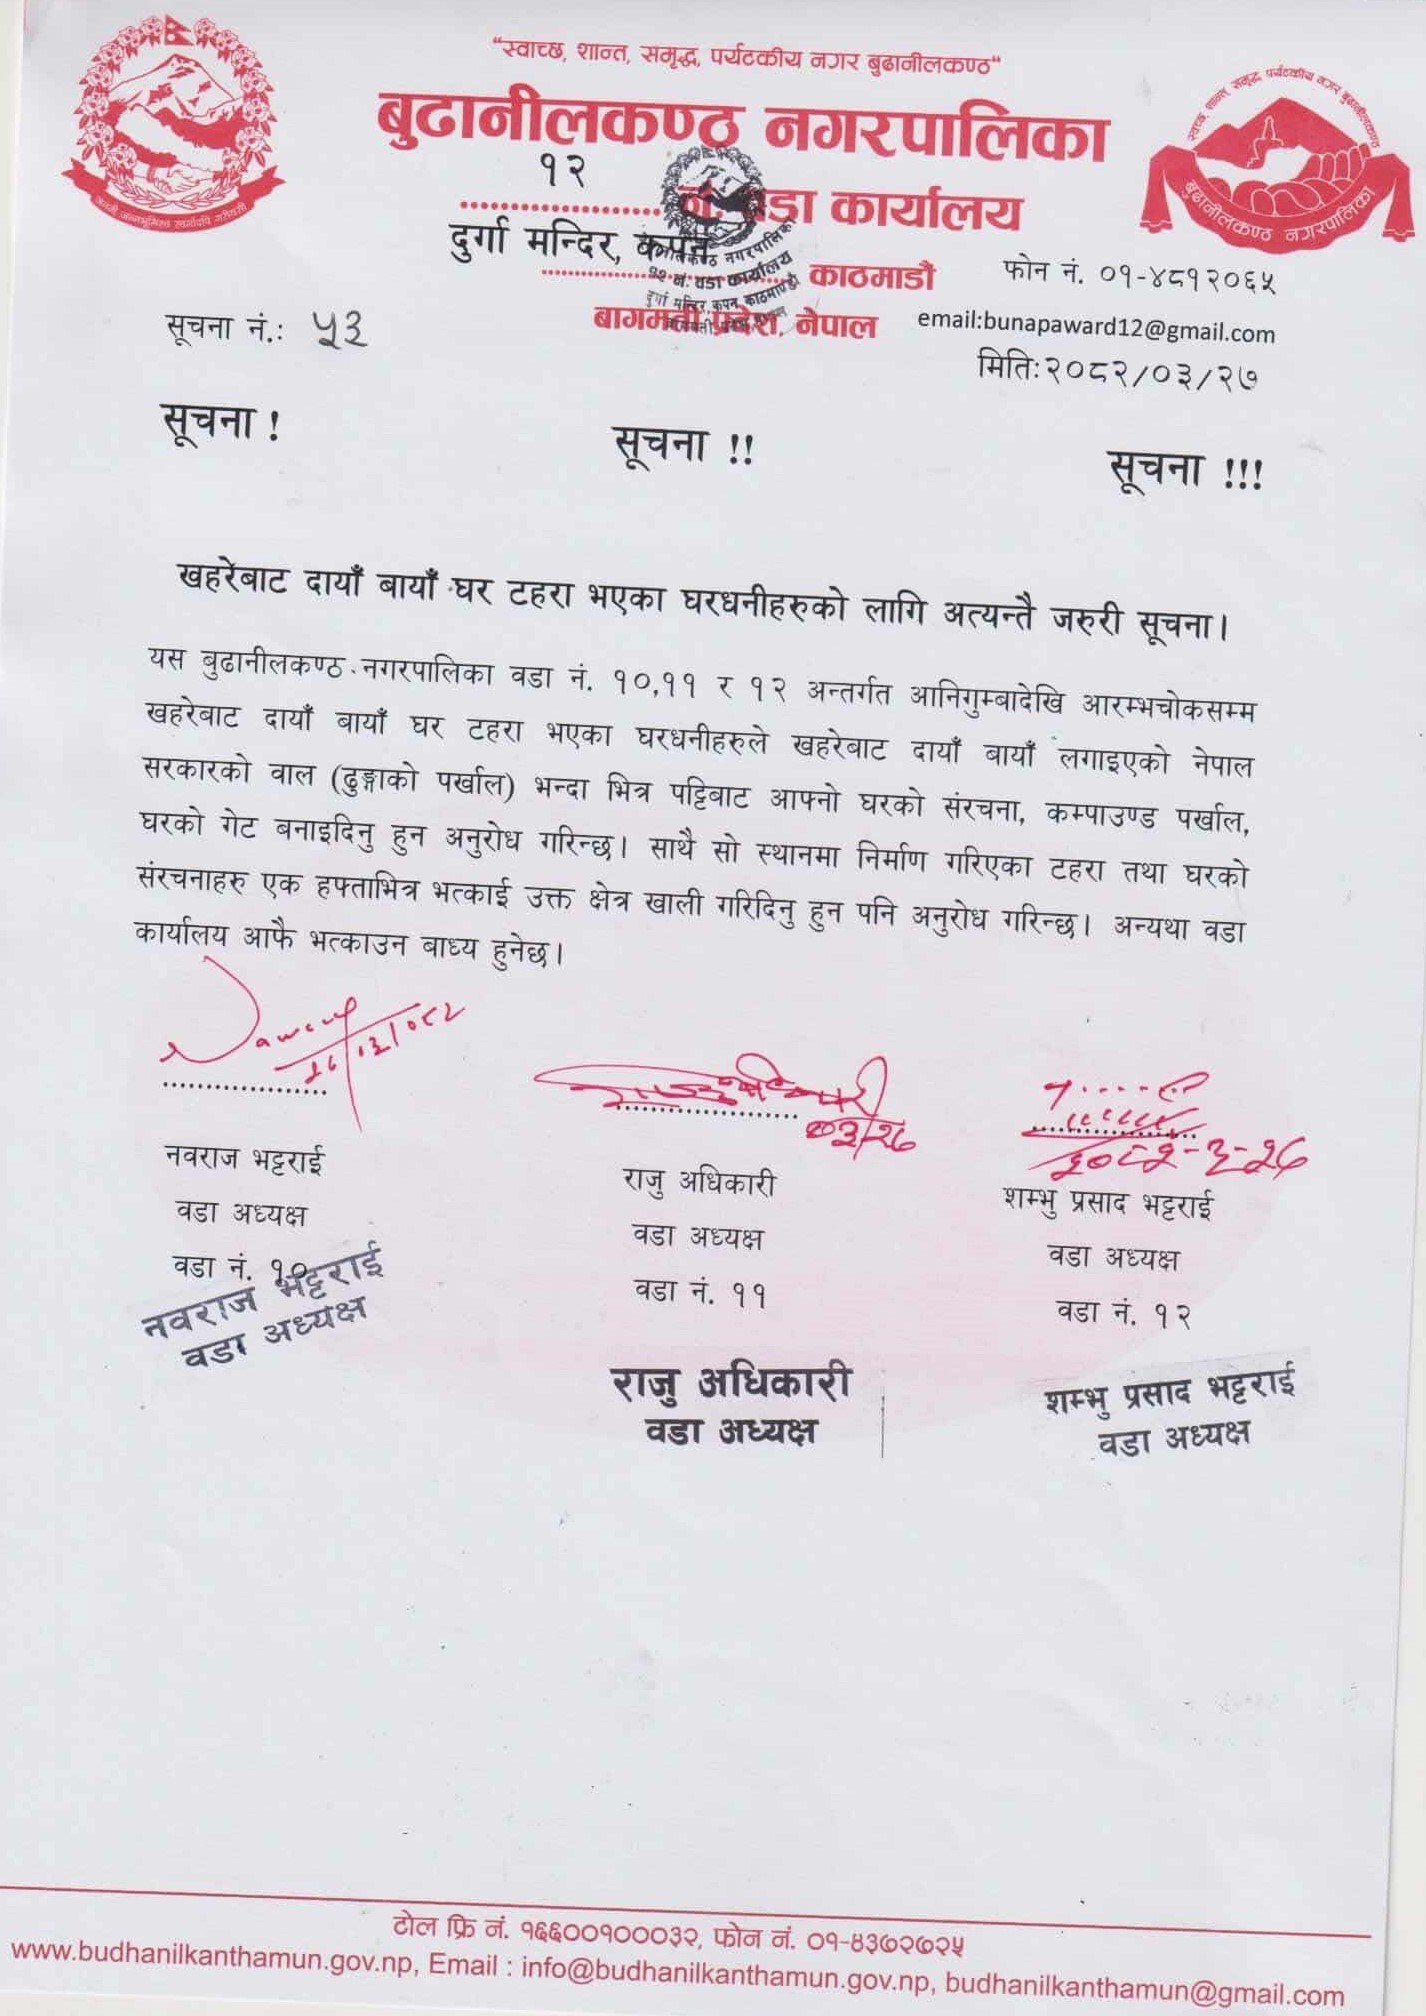 "स्वाच्छ, शान्त, समृद्ध, पर्यटकीय नगर बुढानीलकण्ठ"
बुढानीलकण्ठ नगरपालिका
१२
नं. वडा कार्यालय
दुर्गा मन्दिर, कपन
काठमाडौं
बागमती प्रदेश, नेपाल
जननी जन्मभूमिश्च स्वर्गादपि गरीयसी
स्वच्छ, शान्त, समृद्ध, पर्यटकीय नगर बुढानीलकण्ठ
बुढानीलकण्ठ नगरपालिका
नगरपालिका
१२ नं. वडा कार्यालय
दुर्गा मन्दिर, कपन, काठमाण्डौ
फोन नं. ०१-४८१२०६५
email:bunapaward12@gmail.com
सूचना नं.: ५३
मितिः२०८२/०३/२७
सूचना ! सूचना !! सूचना !!!
खहरेबाट दायाँ बायाँ घर टहरा भएका घरधनीहरुको लागि अत्यन्तै जरुरी सूचना।
यस बुढानीलकण्ठ नगरपालिका वडा नं. १०,११ र १२ अन्तर्गत आनिगुम्बादेखि आरम्भचोकसम्म
खहरेबाट दायाँ बायाँ घर टहरा भएका घरधनीहरुले खहरेबाट दायाँ बायाँ लगाइएको नेपाल
सरकारको वाल (ढुङ्गाको पर्खाल) भन्दा भित्र पट्टिबाट आफ्नो घरको संरचना, कम्पाउण्ड पर्खाल,
घरको गेट बनाइदिनु हुन अनुरोध गरिन्छ। साथै सो स्थानमा निर्माण गरिएका टहरा तथा घरको
संरचनाहरु एक हप्ताभित्र भत्काई उक्त क्षेत्र खाली गरिदिनु हुन पनि अनुरोध गरिन्छ। अन्यथा वडा
कार्यालय आफै भत्काउन बाध्य हुनेछ।
०३/२७
२०८२-३-२७
नवराज भट्टराई
वडा अध्यक्ष
वडा नं. १०
नवराज भट्टराई
वडा अध्यक्ष
राजु अधिकारी
वडा अध्यक्ष
वडा नं. ११
राजु अधिकारी
वडा अध्यक्ष
शम्भु प्रसाद भट्टराई
वडा अध्यक्ष
वडा नं. १२
शम्भु प्रसाद भट्टराई
वडा अध्यक्ष
टोल फ्रि नं. १६६००१०००३२, फोन नं. ०१-४३७२७२५
www.budhanilkanthamun.gov.np, Email : info@budhanilkanthamun.gov.np, budhanilkanthamun@gmail.com